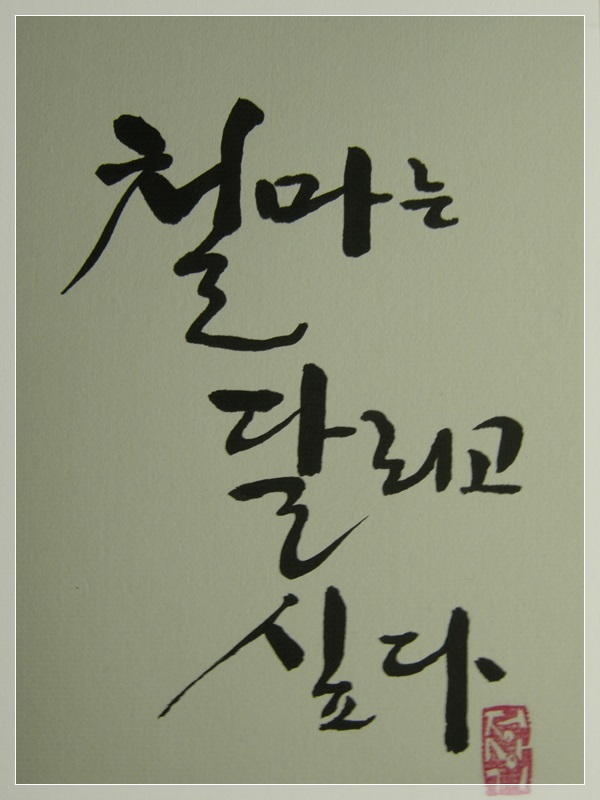 철마는
달리고
싶다